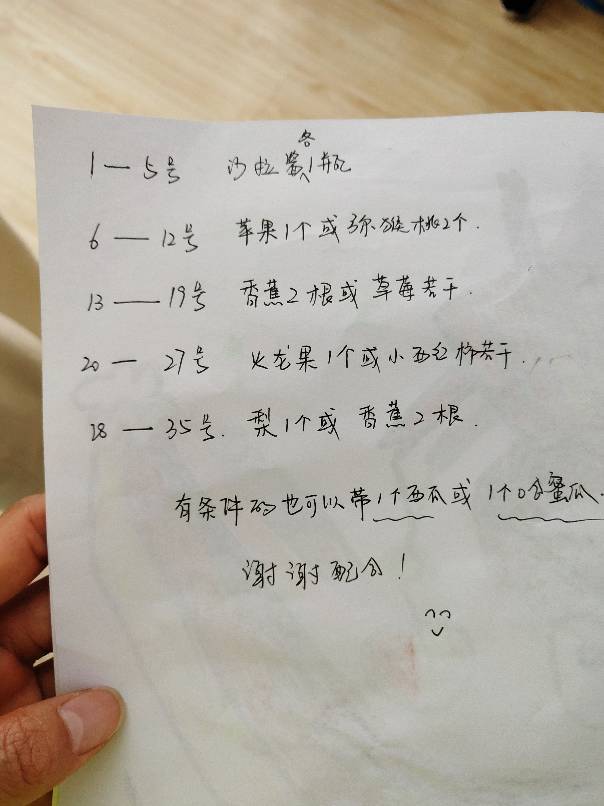 1—5号 沙拉酱各1瓶
6—12号 苹果1个或猕猴桃2个.
13—19号 香蕉2根或草莓若干.
20—27号 火龙果1个或小西红柿若干.
28—35号. 梨1个或香蕉2根.
有条件的也可以带1个西瓜或1个哈蜜瓜.
谢谢配合!